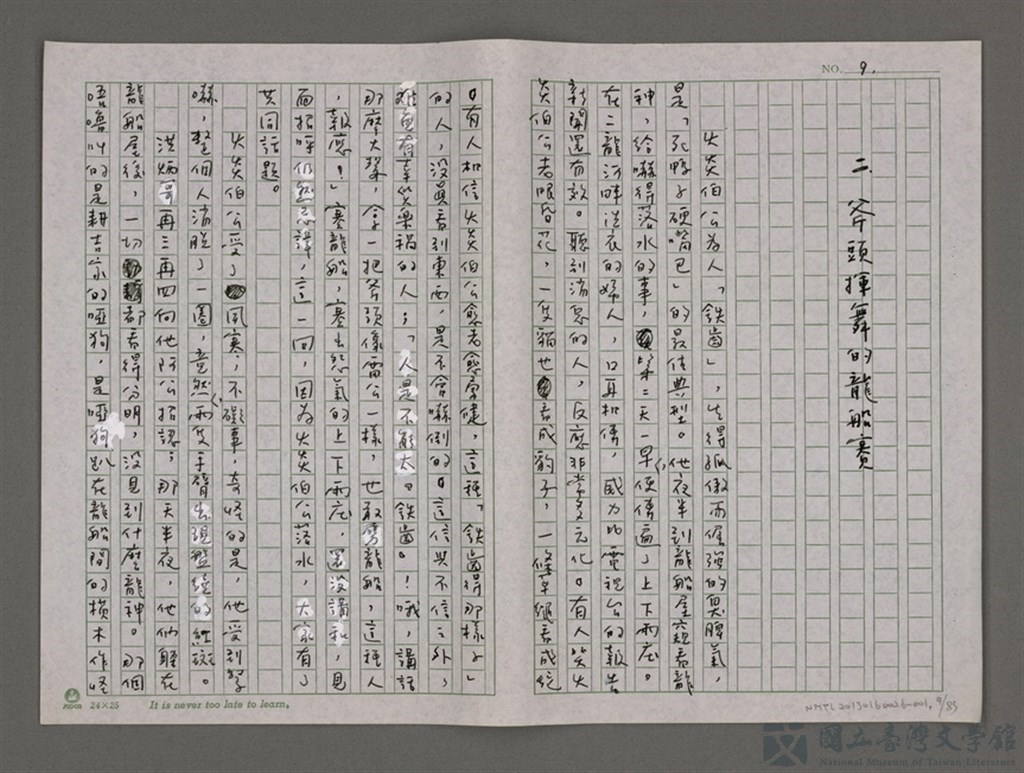 NO. 9.
二、斧頭揮舞的龍船賽
火炎伯公為人「鐵齒」,生得孤傲而倔強的臭脾氣,
是「死鴨子硬嘴巴」的最佳典型。他夜半到龍船屋窺看龍
神,給嚇得落水的事,第二天一早便傳遍了上下兩庄。
在二龍河畔洗衣的婦人,口耳相傳,威力比電視台的報告
新聞還有效。聽到消息的人,反應非常多元化。有人笑火
炎伯公老眼昏花,一隻貓也看成豹子,一條草繩看成蛇
。有人相信火炎伯公愈老愈康健,這種「鐵齒得那樣子」
的人,沒真看到東西,是不會嚇倒的。這信與不信之外,
難免有幸災樂禍的人:「人是不能太。鐵齒。!哦,講話
那麼大聲,拿一把斧頭像雷公一樣,也敢劈龍船,這種人
,報應!」塞龍船,塞出怨氣的上下兩庄,還沒講和,見
面招呼仍然忌諱,這一回,因為火炎伯公落水,大家有了
共同話題。
火炎伯公受了風寒,不礙事,奇怪的是,他受到驚
嚇,整個人消脫了一圈,竟然兩隻手臂出現藍綠的紅斑。
洪炳哥再三再四向他阿公招認:那天半夜,他們躲在
龍船屋後,一切都看得分明,沒見到什麼龍神。那個
唔嚕叫的是耕吉家的啞狗,是啞狗趴在龍船間的損木作怪
24×25 It is never too late to learn.
NMTL20130160026-001. 9/83
國立臺灣文學館
National Museum of Taiwan Literature